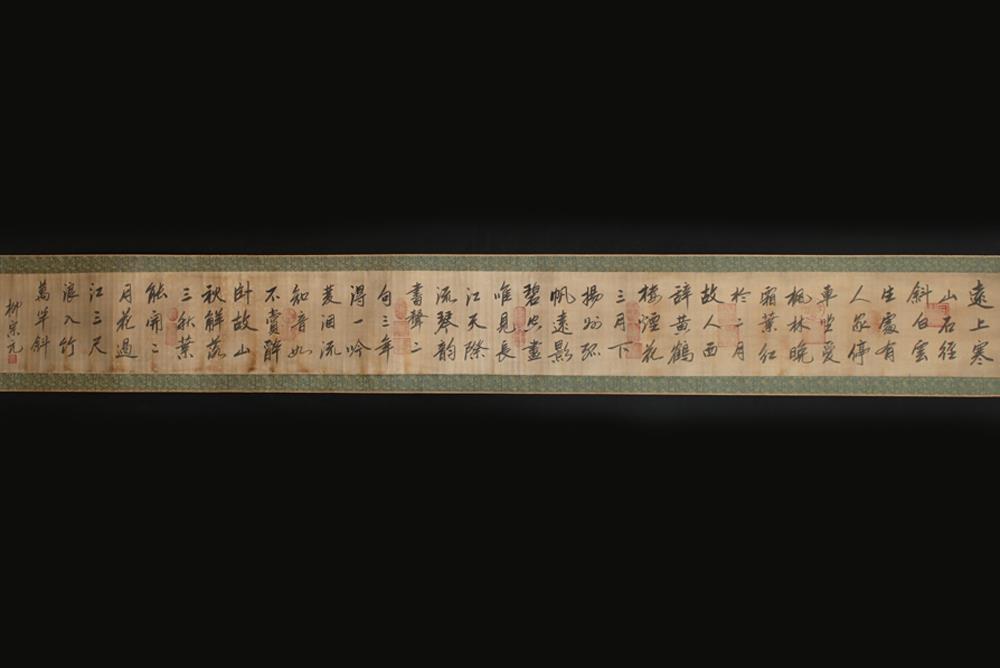 遠上寒
山石徑
斜白雲
生處有
人家停
車坐愛
楓林晚
霜葉紅
於二月
故人西
辭黃鶴
樓煙花
三月下
揚州孤
帆遠影
碧空盡
唯見長
江天際
流琴韵
書聲二
句三年
得一吟
菱泪流
知音如
不賞醉
卧故山
秋解落
三秋葉
能開二
月花過
江三尺
浪入竹
萬竿斜
柳宗元